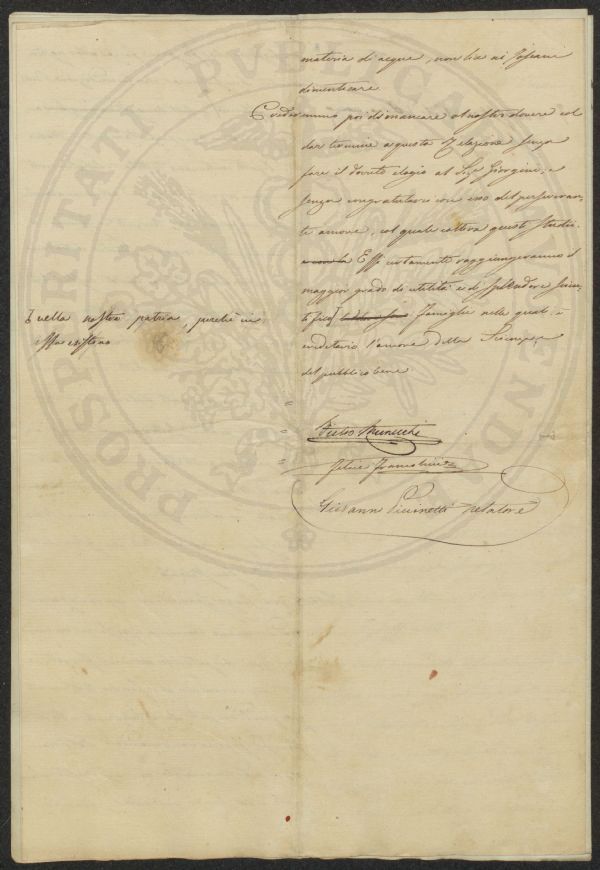 materia di acque, non lice ai Toscani
dimenticare
Crederemmo poi di mancare al nostro dovere col
dar termine a questa Relazione senza
fare il dovuto elogio al Sig Giorgini, e
senza congratularci con esso del perseveran
te amore, col quale coltiva questi studii
Essi certamente raggiungeranno il
maggior grado di utilità e di splendore
famiglie nelle quali è
ereditario l'amore della Scienza e
del pubblico bene
nella nostra patria, perchè in
essa esistono
Pietro Municchi
Felice Francolini
Giovanni Piccinetti Relatore
PROSPERITATI PUBLICAE AUGENDAE